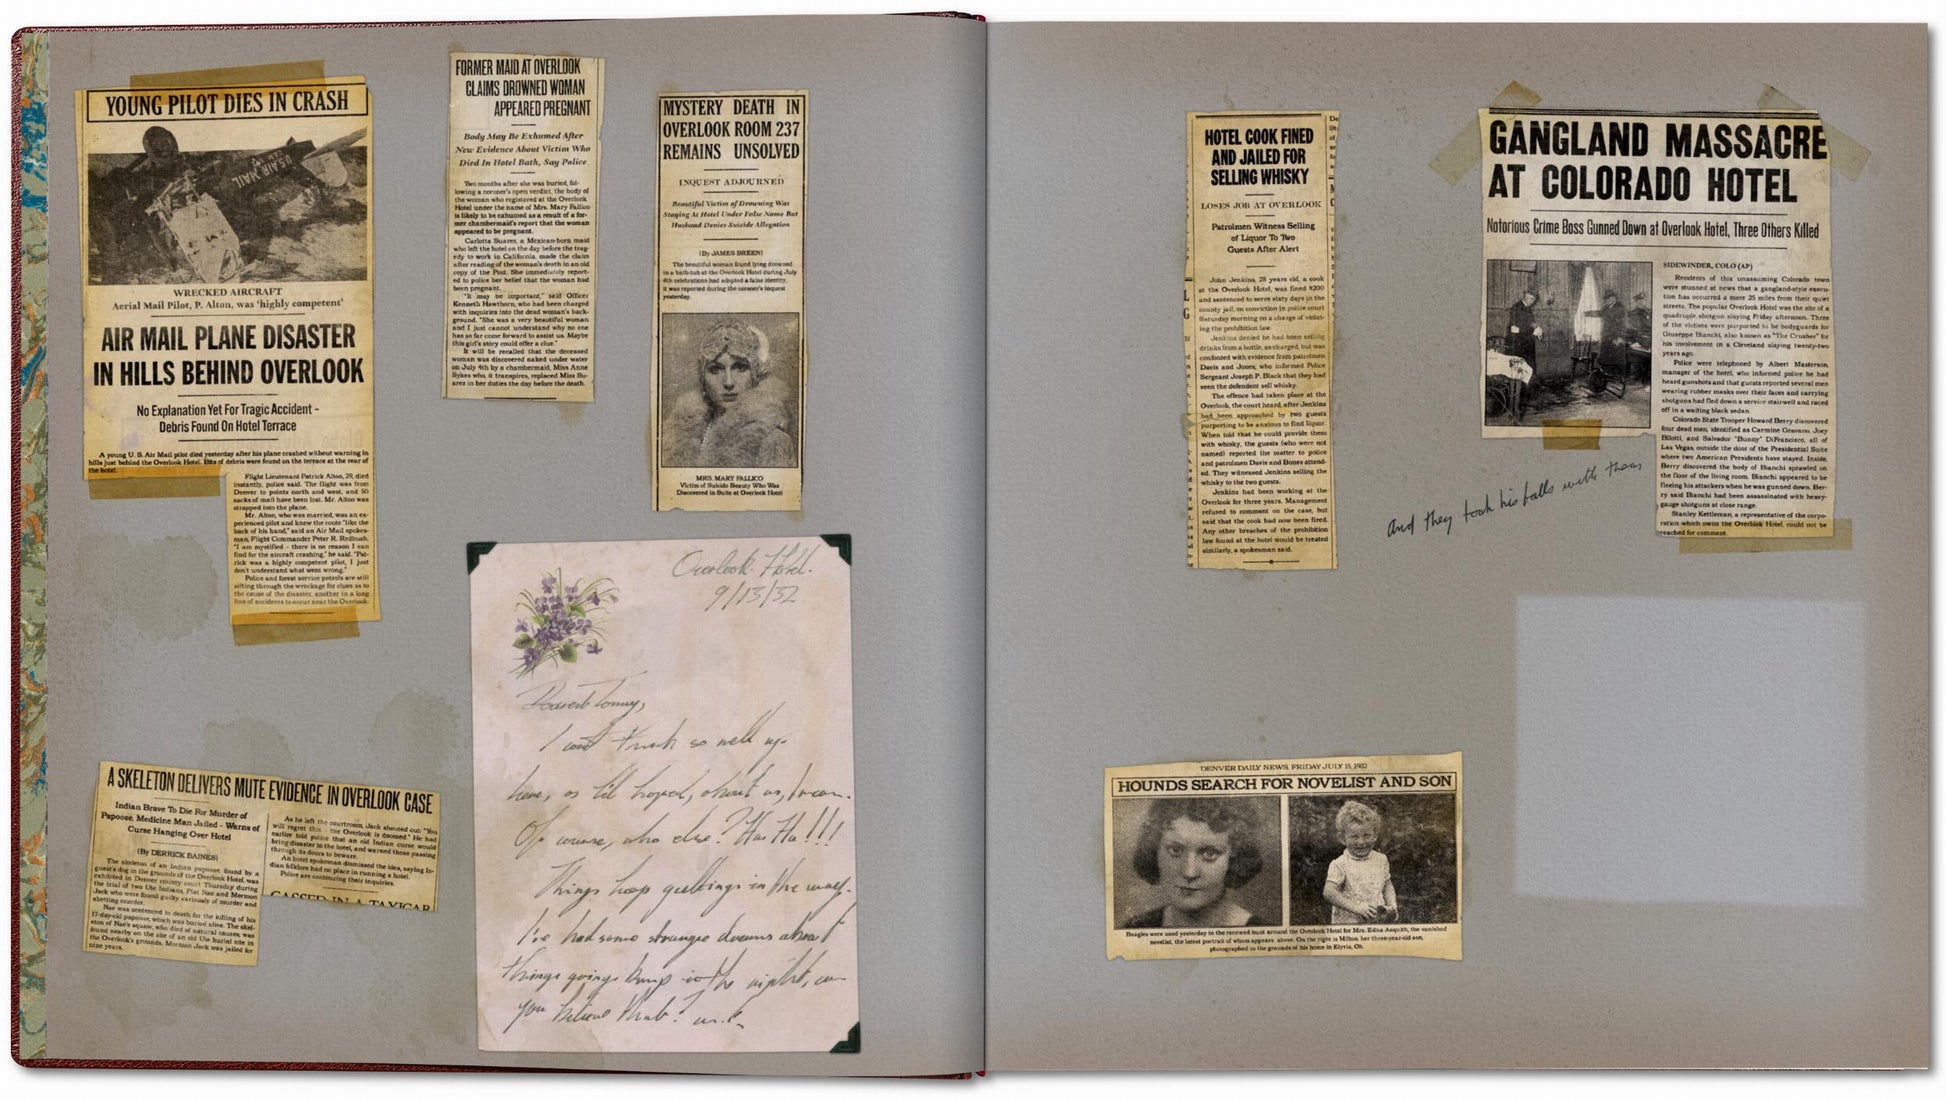 YOUNG PILOT DIES IN CRASH
U.S. AIR MAIL
WRECKED AIRCRAFT
Aerial Mail Pilot, P. Alton, was 'highly competent'
AIR MAIL PLANE DISASTER
IN HILLS BEHIND OVERLOOK
No Explanation Yet For Tragic Accident –
Debris Found On Hotel Terrace
A young U.S. Air Mail pilot died yesterday after his plane crashed without warning in
hills just behind the Overlook Hotel. Bits of debris were found on the terrace at the rear of
the hotel.
Flight Lieutenant Patrick Alton, 29, died
instantly, police said. The flight was from
Denver to points north and west, and 50
sacks of mail have been lost. Mr. Alton was
strapped into the plane.
Mr. Alton, who was married, was an ex-
perienced pilot and knew the route "like the
back of his hand," said an Air Mail spokes-
man, Flight Commander Peter R. Redbush.
"I am mystified – there is no reason I can
find for the aircraft crashing," he said. "Pat-
rick was a highly competent pilot, I just
don't understand what went wrong."
Police and forest service patrols are still
sifting through the wreckage for clues as to
the cause of the disaster, another in a long
line of accidents to occur near the Overlook.
FORMER MAID AT OVERLOOK
CLAIMS DROWNED WOMAN
APPEARED PREGNANT
Body May Be Exhumed After
New Evidence About Victim Who
Died In Hotel Bath, Say Police
Two months after she was buried, fol-
lowing a coroner's open verdict, the body of
the woman who registered at the Overlook
Hotel under the name of Mrs. Mary Fallico
is likely to be exhumed as a result of a for-
mer chambermaid's report that the woman
appeared to be pregnant.
Carlotta Suarez, a Mexican-born maid
who left the hotel on the day before the trag-
edy to work in California, made the claim
after reading of the woman's death in an old
copy of the Post. She immediately report-
ed to police her belief that the woman had
been pregnant.
"It may be important," said Officer
Kenneth Hawthorn, who had been charged
with inquiries into the dead woman's back-
ground. "She was a very beautiful woman
and I just cannot understand why no one
has so far come forward to assist us. Maybe
this girl's story could offer a clue."
It will be recalled that the deceased
woman was discovered naked under water
on July 4th by a chambermaid, Miss Anne
Sykes who, it transpires, replaced Miss Su-
arez in her duties the day before the death.
MYSTERY DEATH IN
OVERLOOK ROOM 237
REMAINS UNSOLVED
INQUEST ADJOURNED
Beautiful Victim of Drowning Was
Staying At Hotel Under False Name But
Husband Denies Suicide Allegation
(By JAMES BREEN)
The beautiful woman found lying drowned
in a bath-tub at the Overlook Hotel during July
4th celebrations had adopted a false identity,
it was reported during the coroner's inquest
yesterday.
MRS. MARY FALLICO
Victim of Suicide Beauty Who Was
Discovered in Suite at Overlook Hotel
Overlook Hotel.
9/13/52
Dearest Tommy,
I can't think so well up
here, as I'd hoped, about us, I mean.
Of course, who else? Ha Ha!!!
Things keep getting in the way.
I've had some strange dreams about
things going bump in the night, can
you believe that?
A SKELETON DELIVERS MUTE EVIDENCE IN OVERLOOK CASE
Indian Brave To Die For Murder of
Papoose, Medicine Man Jailed – Warns of
Curse Hanging Over Hotel
(By DERRICK BAINES)
The skeleton of an Indian papoose, found by a
guest's dog in the grounds of the Overlook Hotel, was
exhibited in Denver county court Thursday during
the trial of two Ute Indians, Piat Nae and Mormon
Jack who were found guilty variously of murder and
abetting murder.
Nae was sentenced to death for the killing of his
17-day-old papoose, which was buried alive. The skel-
eton of Nae's squaw, who died of natural causes, was
found nearby on the site of an old Ute burial site in
the Overlook's grounds. Mormon Jack was jailed for
nine years.
As he left the courtroom, Jack shouted out: "You
will regret this – the Overlook is doomed." He had
earlier told police that an old Indian curse would
bring disaster to the hotel, and warned those passing
through its doors to beware.
An hotel spokesman dismissed the idea, saying In-
dian folklore had no place in running a hotel.
Police are continuing their inquiries.
GASSED IN A TAXICAB
HOTEL COOK FINED
AND JAILED FOR
SELLING WHISKY
LOSES JOB AT OVERLOOK
Patrolmen Witness Selling
of Liquor To Two
Guests After Alert
John Jenkins, 28 years old, a cook
at the Overlook Hotel, was fined $200
and sentenced to serve sixty days in the
county jail, on conviction in police court
Saturday morning on a charge of violat-
ing the prohibition law.
Jenkins denied he had been selling
drinks from a bottle, as charged, but was
confonted with evidence from patrolmen
Davis and Jones, who informed Police
Sergeant Joseph P. Black that they had
seen the defendent sell whisky.
The offence had taken place at the
Overlook, the court heard, after Jenkins
had been approached by two guests
purporting to be anxious to find liquor.
When told that he could provide them
with whisky, the guests (who were not
named) reported the matter to police
and patrolmen Davis and Bones attend-
ed. They witnessed Jenkins selling the
whisky to the two guests.
Jenkins had been working at the
Overlook for three years. Management
refused to comment on the case, but
said that the cook had now been fired.
Any other breaches of the prohibition
law found at the hotel would be treated
similarly, a spokesman said.
GANGLAND MASSACRE
AT COLORADO HOTEL
Notorious Crime Boss Gunned Down at Overlook Hotel, Three Others Killed
SIDEWINDER, COLO (AP)
Residents of this unassuming Colorado town
were stunned at news that a gangland-style execu-
tion has occurred a mere 25 miles from their quiet
streets. The popular Overlook Hotel was the site of a
quadruple shotgun slaying Friday afternoon. Three
of the victims were purported to be bodyguards for
Giuseppe Bianchi, also known as "The Crusher" for
his involvement in a Cleveland slaying twenty-two
years ago.
Police were telephoned by Albert Masterson,
manager of the hotel, who informed police he had
heard gunshots and that guests reported several men
wearing rubber masks over their faces and carrying
shotguns had fled down a service stairwell and raced
off in a waiting black sedan.
Colorado State Trooper Howard Berry discovered
four dead men, identified as Carmine Gravano, Joey
Bilotti, and Salvador "Bunny" DiFrancisco, all of
Las Vegas, outside the door of the Presidential Suite
where two American Presidents have stayed. Inside,
Berry discovered the body of Bianchi sprawled on
the floor of the living room. Bianchi appeared to be
fleeing his attackers when he was gunned down. Ber-
ry said Bianchi had been assassinated with heavy-
gauge shotguns at close range.
Stanley Kettleman, a representative of the corpo-
ration which owns the Overlook Hotel could not be
reached for comment.
and they took his balls with them
DENVER DAILY NEWS, FRIDAY JULY 15,
HOUNDS SEARCH FOR NOVELIST AND SON
Beagles were used yesterday in the renewed hunt around the Overlook Hotel for Mrs. Edna Asquith, the vanished
novelist, the latest portrait of whom appears above. On the right is Milton, her three-year-old son,
photographed in the grounds of his home in Elyria, Oh.